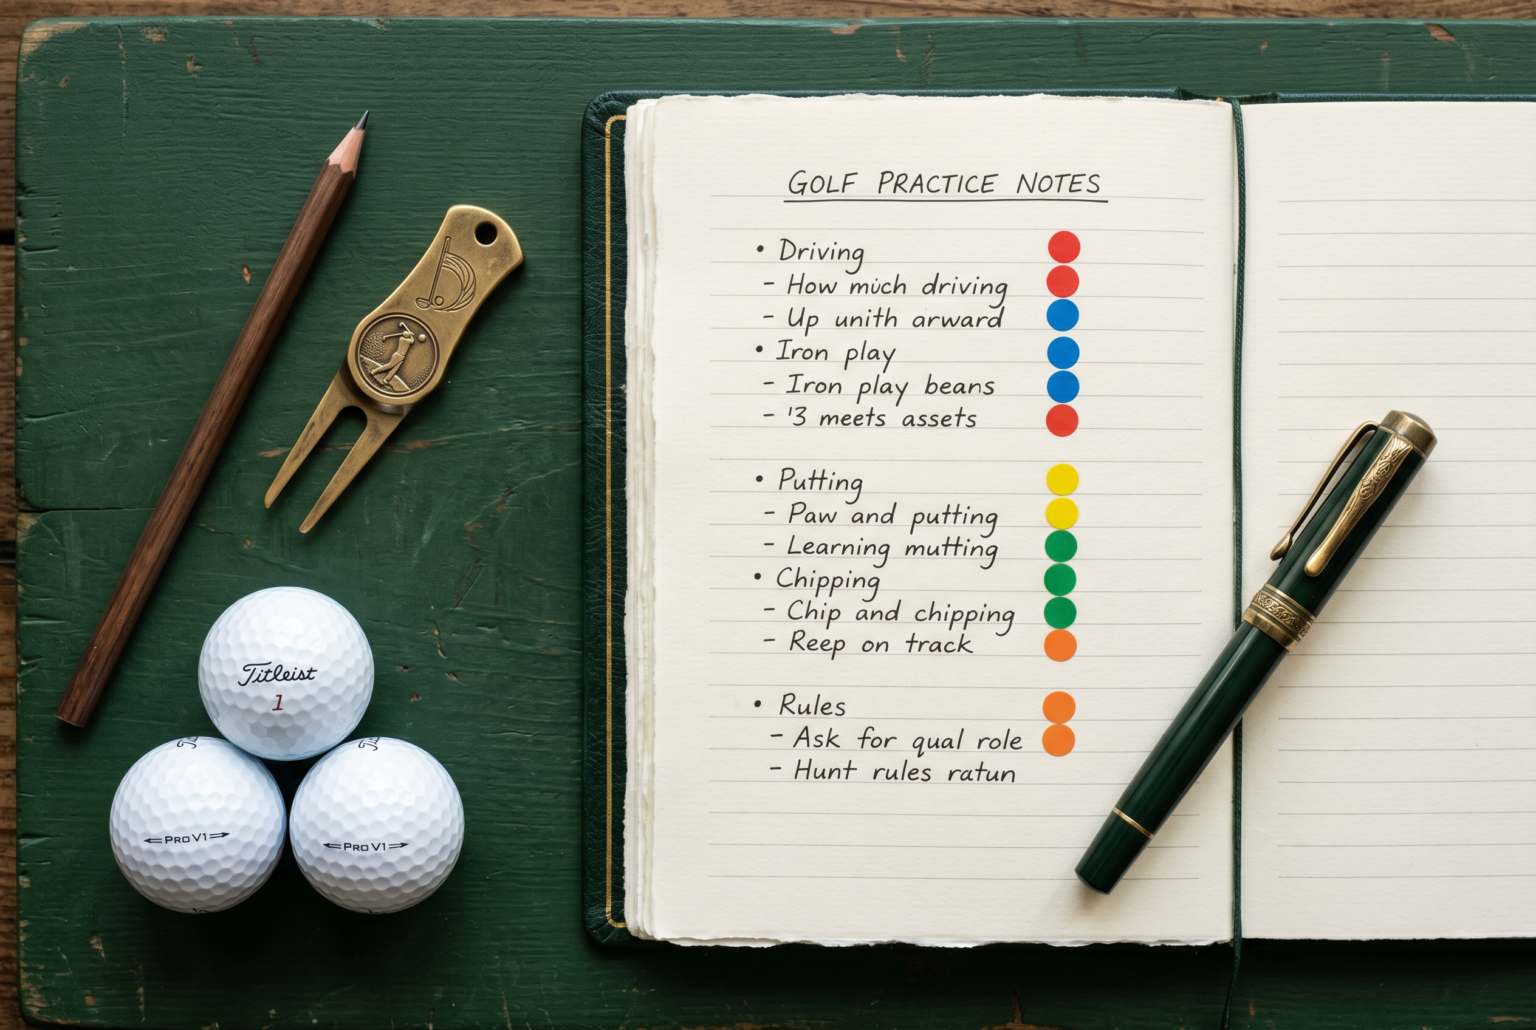 GOLF PRACTICE NOTES
• Driving
- How much driving
- Up unith arward
• Iron play
- Iron play beans
- '3 meets assets
• Putting
- Paw and putting
- Learning mutting
• Chipping
- Chip and chipping
- Reep on track
• Rules
- Ask for qual role
- Hunt rules ratun
Titleist
1
PRO V1
PRO V1